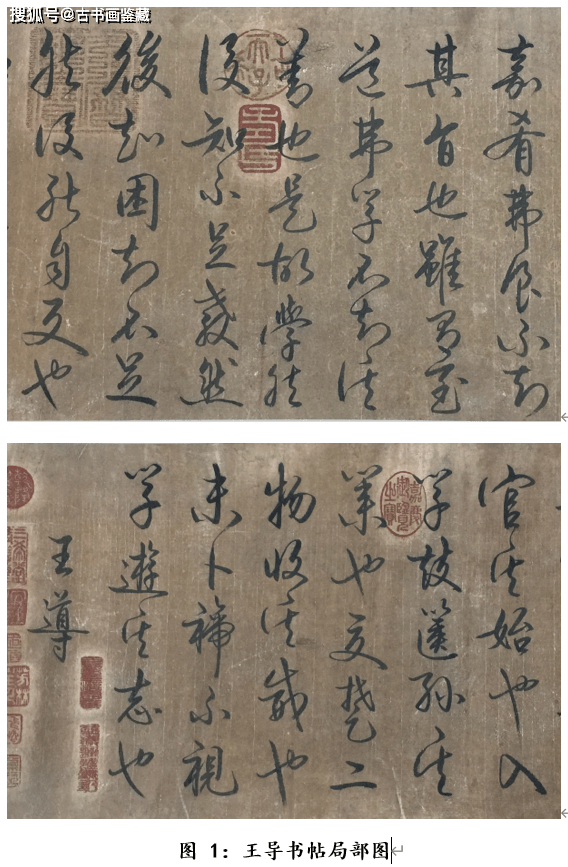 搜狐号@古书画鉴藏
嘉肴弗食不知
其旨也雖有至
道弗学不知其
善也是故學然
後知不足教然
後知困知不足
然後能自反也
官其始也入
学鼓篋孫其
業也夏楚二
物收其威也
未卜禘不視
学遊其志也
王導
嘉慶御覽之寶
图 1：王导书帖局部图